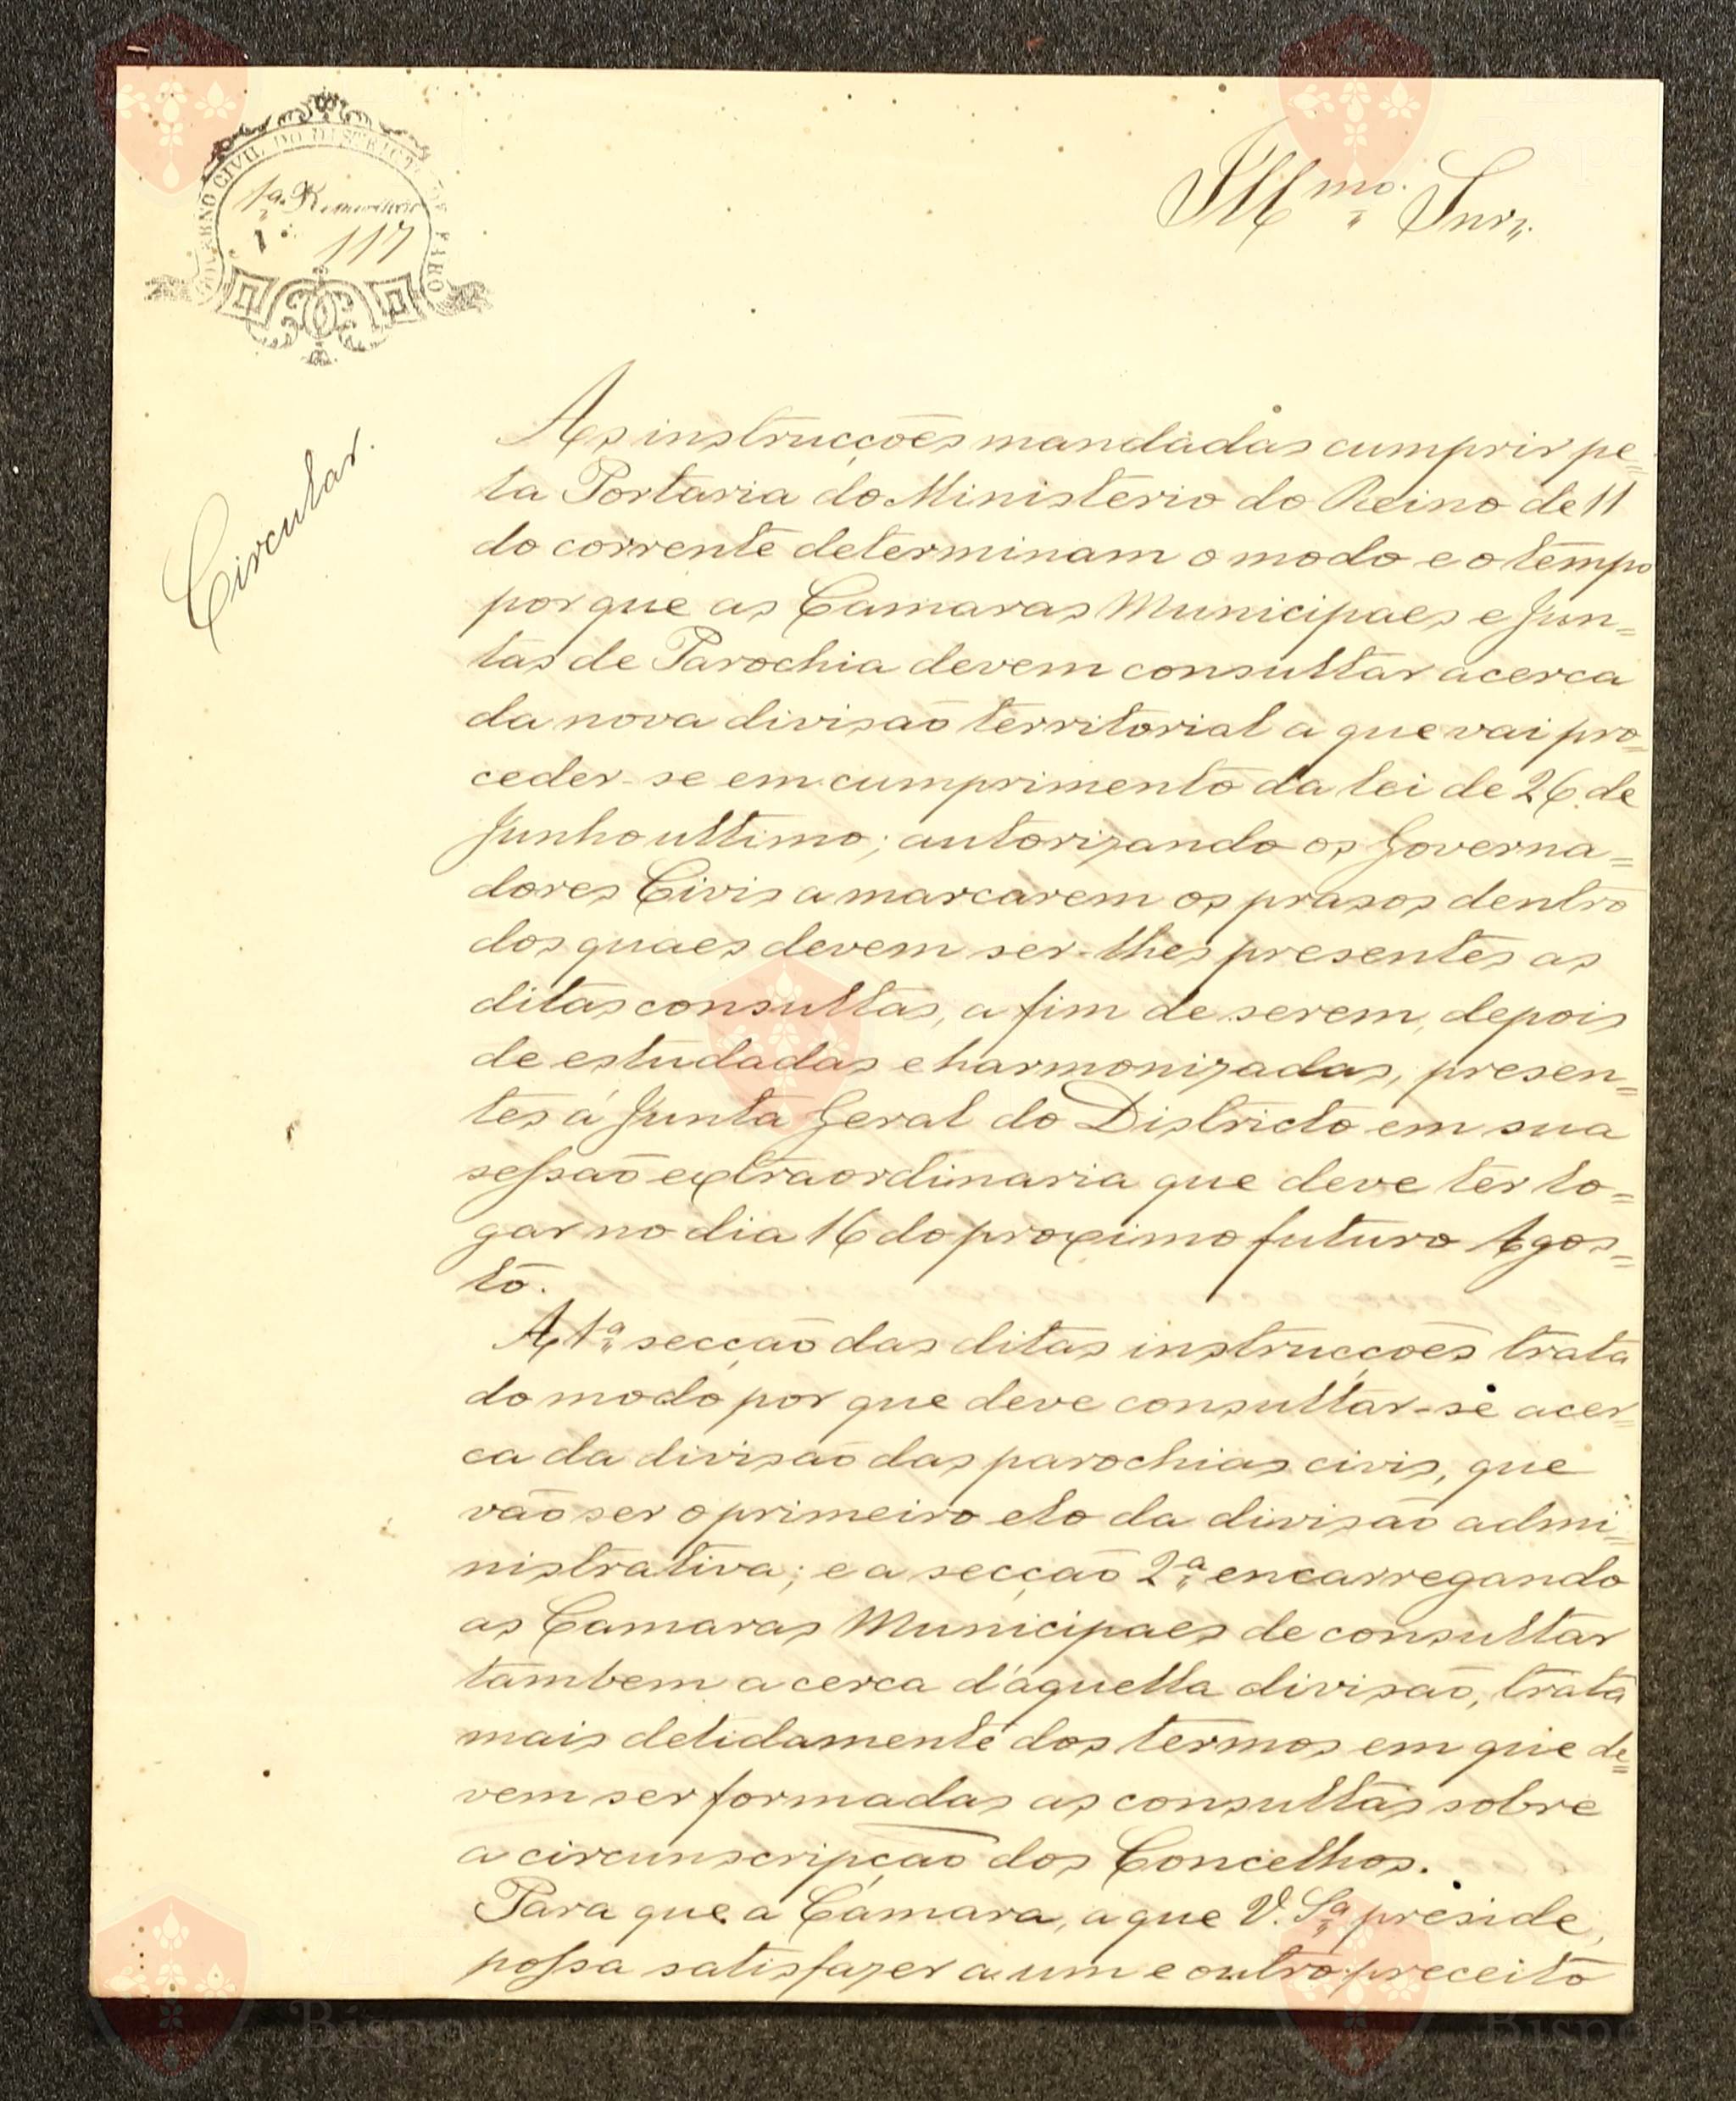 GOVERNO CIVIL DO DISTRICTO DE FARO
1ª
1
117
Illmo. Snr.
Circular.
As instrucções mandadas cumprir pe=
la Portaria do Ministerio do Reino de 11
do corrente determinam o modo e o tempo
por que as Camaras Municipaes e Jun=
tas de Parochia devem consultar acerca
da nova divisão territorial a que vai pro=
ceder-se em cumprimento da lei de 26 de
Junho ultimo; autorizando os Governa=
dores Civis a marcarem os prasos dentro
dos quaes devem ser-lhes presentes as
ditas consultas, a fim de serem, depois
de estudadas e harmonizadas, presen=
tes á Junta Geral do Districto em sua
sessão extraordinaria que deve ter lo=
gar no dia 16 do proximo futuro Agos=
to.
A 1ª secção das ditas instrucções trata
do modo por que deve consultar-se acer=
ca da divisão das parochias civis, que
vão ser o primeiro elo da divisão admi=
nistrativa; e a secção 2ª encarregando
as Camaras Municipaes de consultar
tambem a cerca d'aquella divisão, trata
mais detidamente dos termos em que de=
vem ser formadas as consultas sobre
a circunscripção dos Concelhos.
Para que a Câmara, a que V. Sª preside,
possa satisfazer a um e outro preceito
Bispo
Bispo